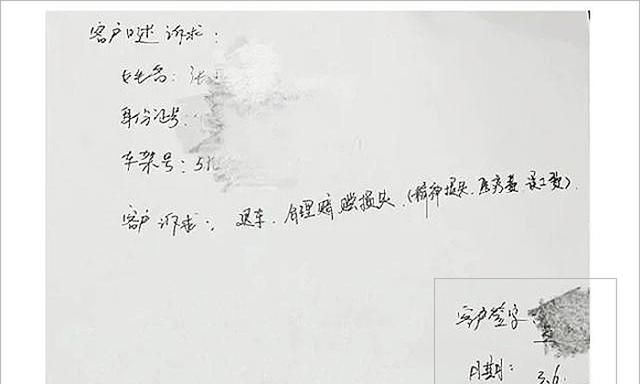 客户口述诉求：
姓名：张
身份证号：
车架号：5
客户诉求：退车、合理赔赏损失、(精神损失、医疗费、误工费)、
客户签字：
日期：3.6